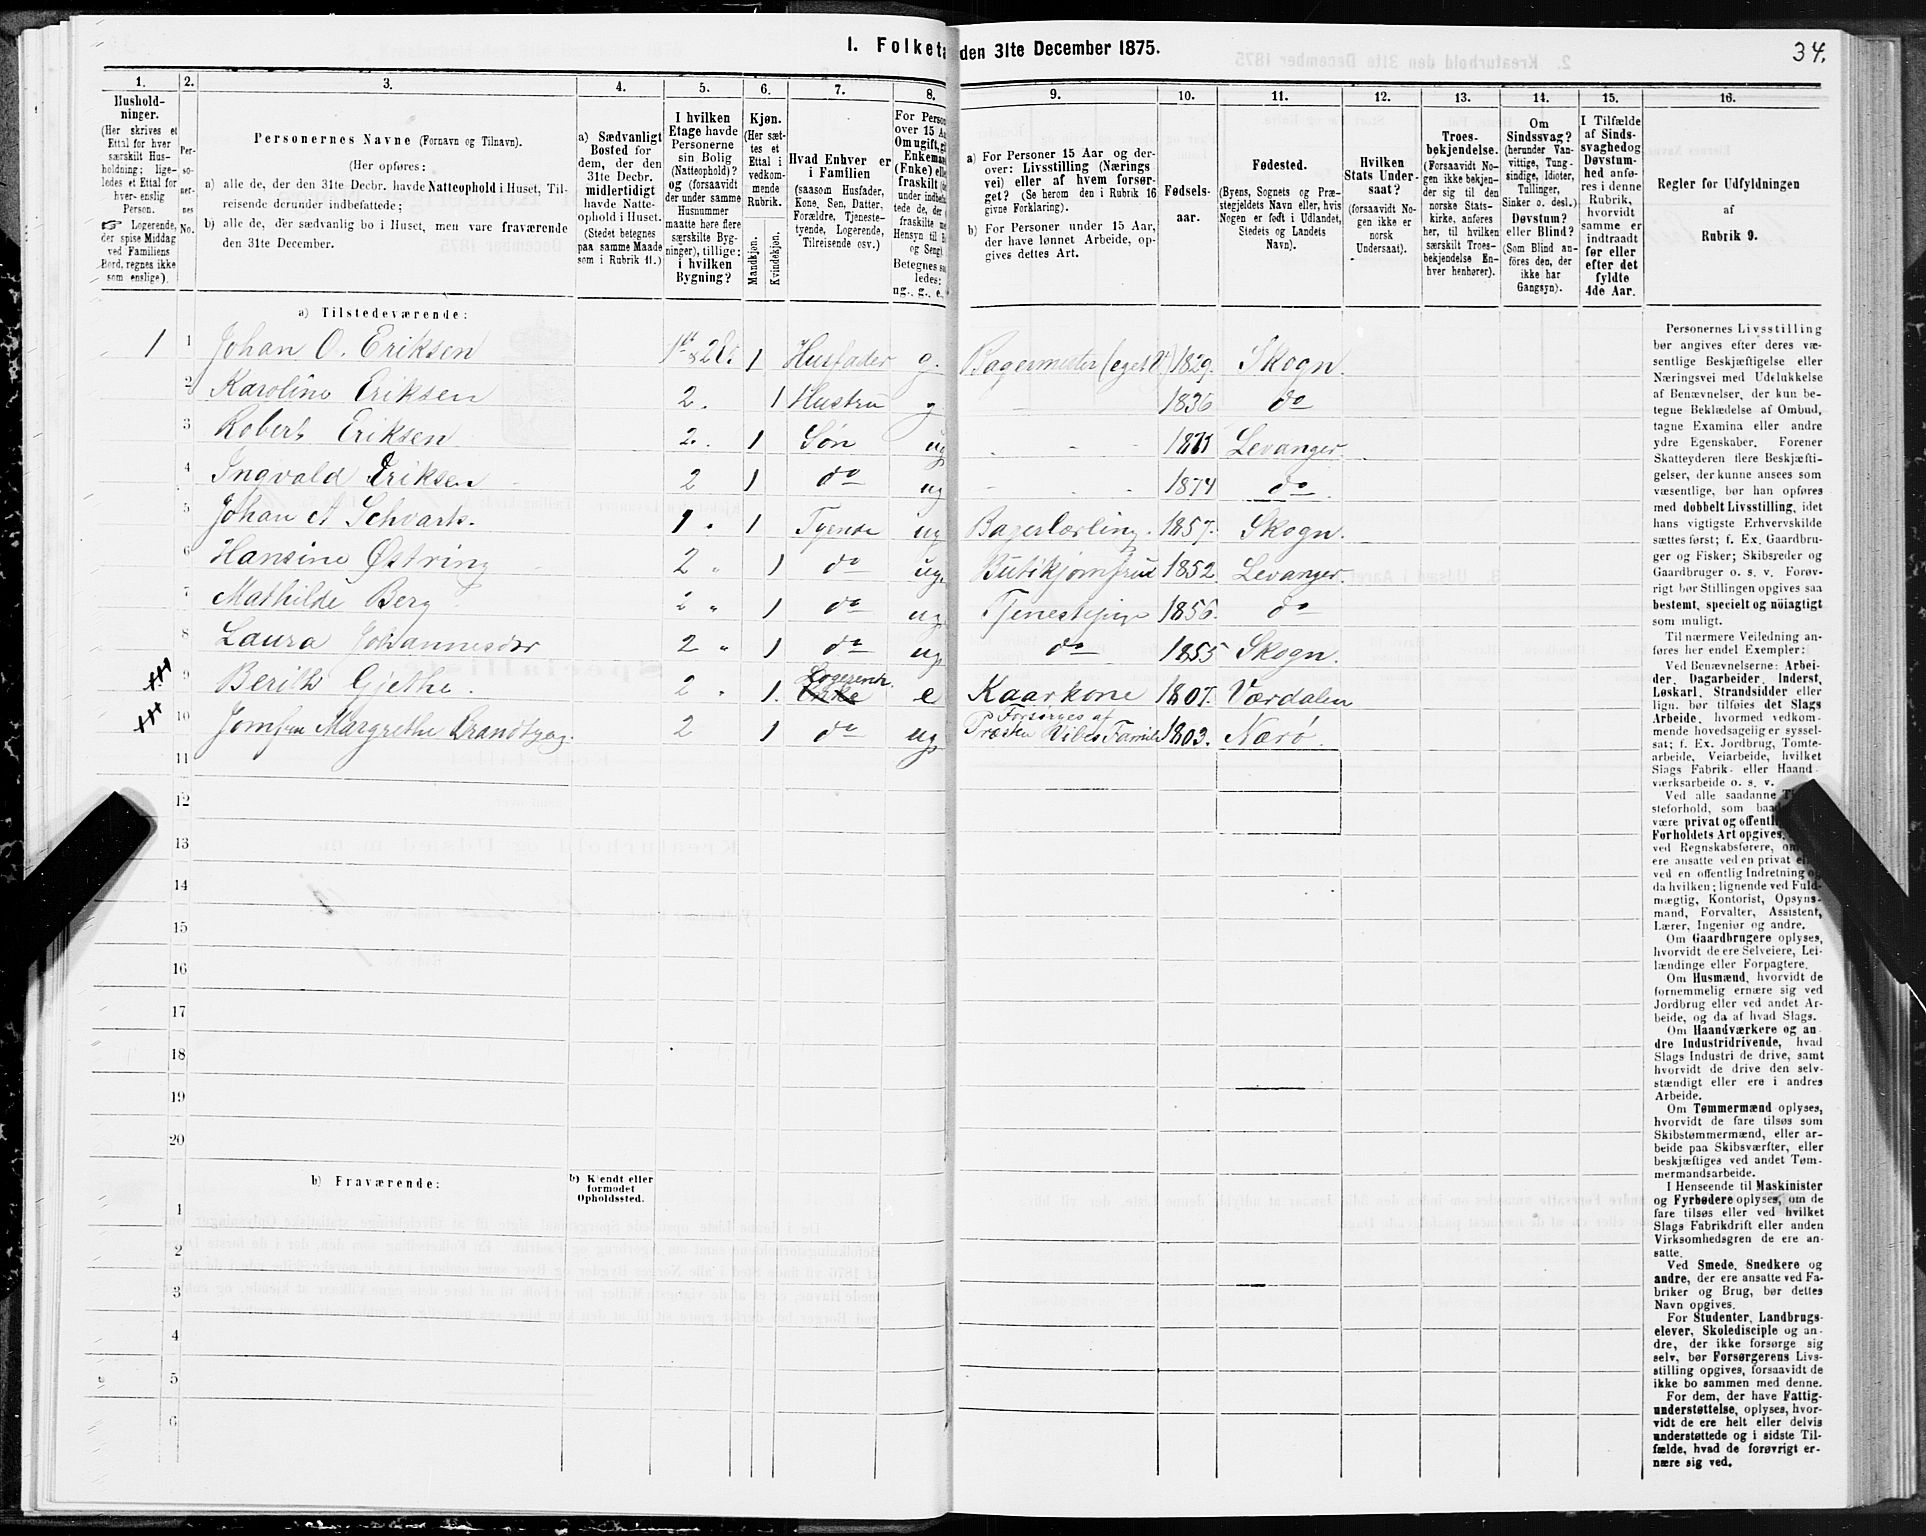 I. Folketa den 31te December 1875.
34.
1. 2. 3. 4. 5. 6. 7. 8. 9. 10. 11. 12. 13. 14. 15. 16.
Hushold-
ninger.
(Her skrives et
Ettal for hver
særskilt Hus-
holdning; lige-
ledes et Ettal for
hver enslig
Person.
☞ Logerende,
der spise Middag
ved Familiens
Bord, regnes ikke
som enslige).
Per-
so-
ner-
nes
No.
Personernes Navne (Fornavn og Tilnavn).
(Her opføres:
a) alle de, der den 31te Decbr. havde Natteophold i Huset, Til-
reisende derunder indbefattede;
b) alle de, der sædvanlig bo i Huset, men vare fraværende
den 31te December.
a) Sædvanligt
Bosted for
dem, der den
31te Decbr.
midlertidigt
havde Natte-
ophold i Huset.
(Stedet betegnes
paa samme Maade
som i Rubrik 11.)
I hvilken
Etage havde
Personerne
sin Bolig
(Natteophold)?
og (forsaavidt
der under samme
Husnummer
maatte høre flere
særskilte Byg-
ninger), tillige:
i hvilken
Bygning?
Kjøn.
(Her sæt-
tes et
Ettal i
vedkom-
mende
Rubrik.
Mandkjøn.
Kvindekjøn.
Hvad Enhver er
i Familien
(saasom Husfader,
Kone, Søn, Datter,
Forældre, Tjeneste-
tyende, Logerende,
Tilreisende osv.)
For Perso
over 15 Aa
Om ugift, gi
Enkemand
(Enke) elle
fraskilt (de
under indbefa
tede de, der e
fraskilte me
Hensyn til B
og Seng).
Betegnes saa
ledes:
ug., g., e.,
a) For Personer 15 Aar og der-
over: Livsstilling (Nærings
vei) eller af hvem forsør-
get? (Se herom den i Rubrik 16
givne Forklaring).
b) For Personer under 15 Aar,
der have lønnet Arbeide, op-
gives dettes Art.
Fødsels-
aar.
Fødested.
(Byens, Sognets og Præ-
stegjeldets Navn eller, hvis
Nogen er født i Udlandet,
Stedets og Landets
Navn).
Hvilken
Stats Under-
saat?
(forsaavidt No-
gen ikke er
norsk
Undersaat).
Troes-
bekjendelse.
(Forsaavidt No-
gen ikke bekjen-
der sig til den
norske Stats-
kirke, anføres
her, til hvilken
særskilt Troes-
bekjendelse En-
hver henhører).
Om
Sindssvag?
(herunder Van-
vittige, Tung-
sindige, Idioter,
Tullinger,
Sinker o. desl.)
Døvstum?
eller Blind?
(Som Blind an-
føres den, der
ikke har
Gangsyn).
I Tilfælde
af Sinds-
svaghed og
Døvstum-
hed anfø-
res i denne
Rubrik,
hvorvidt
samme er
indtraadt
før eller
efter det
fyldte
4de Aar.
Regler for Udfyldningen
af
Rubrik 9.
a) Tilstedeværende:
1 1 Johan O. Eriksen 1 Husfader g. Bagermester 1829. Skogn.
2 Karoline Eriksen 2. 1 Hustru g - 1836 do
3 Robert Eriksen 2. 1 Søn ug - Levanger
4 Ingvald Eriksen 2 1 do ug - 1874 do
5 Johan A Schvarts. 1. 1 Tyende ug Bagerlærling. 1857. Skogn.
6 Hansine Østring 2 " 1 do ug. Butikjomfru 1852. Levanger.
7 Mathilde Berg 2 " 1 do ug Tjenestepige 1856. do
8 Laura Johannesdtr 2 " 1 do ug do 1855 Skogn.
9 Berith Gjethe. 2 " 1. Logerende e Kaarkone 1807. Værdalen
10 Jomfru Margrethe 2 1 do ug Forsørges af
Præsten Vibes Familie 1803. Nærø.
11
12
13
14
15
16
17
18
19
20
b) Fraværende:
b) Kjendt eller
formodet
Opholdssted.
1
2
3
4
5
6
Personernes Livsstilling
bør angives efter deres væ-
sentlige Beskjæftigelse eller
Næringsvei med Udelukkelse
af Benævnelser, der kun be-
tegne Beklædelse af Ombud,
tagne Examina eller andre
ydre Egenskaber. Forener
Skatteyderen flere Beskjæfti-
gelser, der kunne ansees som
væsentlige, bør han opføres
med dobbelt Livsstilling, idet
hans vigtigste Erhvervskilde
sættes først; f. Ex. Gaardbru-
ger og Fisker; Skibsreder og
Gaardbruger o. s. v. Forøv-
rigt bør Stillingen opgives saa
bestemt, specielt og nøiagtigt
som muligt.
Til nærmere Veiledning an-
føres her endel Exempler:
Ved Benævnelserne: Arbei-
der, Dagarbeider, Inderst,
Løskarl, Strandsidder eller
lign. bør tilføies det Slags
Arbeide, hvormed vedkom-
mende hovedsagelig er syssel-
sat; f. Ex. Jordbrug, Tomte-
arbeide, Veiarbeide, hvilket
Slags Fabrik- eller Haand-
værksarbeide o. s. v.
Ved alle saadanne
steforhold, som
være privat og offentli
Forholdets Art opgives,
ved Regnskabsførere, om
ere ansatte ved en privat
ved en offentlig Indretning og
da hvilken; lignende ved Fuld-
mægtig, Kontorist, Opsyns-
mand, Forvalter, Assistent,
Lærer, Ingeniør og andre.
Om Gaardbrugere oplyses,
hvorvidt de ere Selveiere, Lei-
lændinge eller Forpagtere.
Om Husmænd, hvorvidt de
fornemmelig ernære sig ved
Jordbrug eller ved andet Ar-
beide, og da af hvad Slags.
Om Haandværkere og an
dre Industridrivende, hvad
Slags Industri de drive, samt
hvorvidt de drive den selv-
stændigt eller ere i andres
Arbeide.
Om Tømmermænd oplyses,
hvorvidt de fare tilsøs som
Skibstømmermænd, eller ar-
beide paa Skibsværfter, eller
beskjæftiges ved andet Tøm-
mermandsarbeide.
I Henseende til Maskinister
og Fyrbødere oplyses, om de
fare tilsøs eller ved hvilket
Slags Fabrikdrift eller anden
Virksomhedsgren de ere an-
satte.
Ved Smede, Snedkere og
andre, der ere ansatte ved Fa-
briker og Brug, bør dettes
Navn opgives.
For Studenter, Landbrugs-
elever, Skoledisciple og an-
dre, der ikke forsørge sig
selv, bør Forsørgerens Livs-
stilling opgives, forsaavidt de
ikke bo sammen med denne.
For dem, der have Fattig-
understøttelse, oplyses, hvor-
vidt de ere helt eller delvis
understøttede og i sidste Til-
fælde, hvad de forøvrigt er-
nære sig ved.